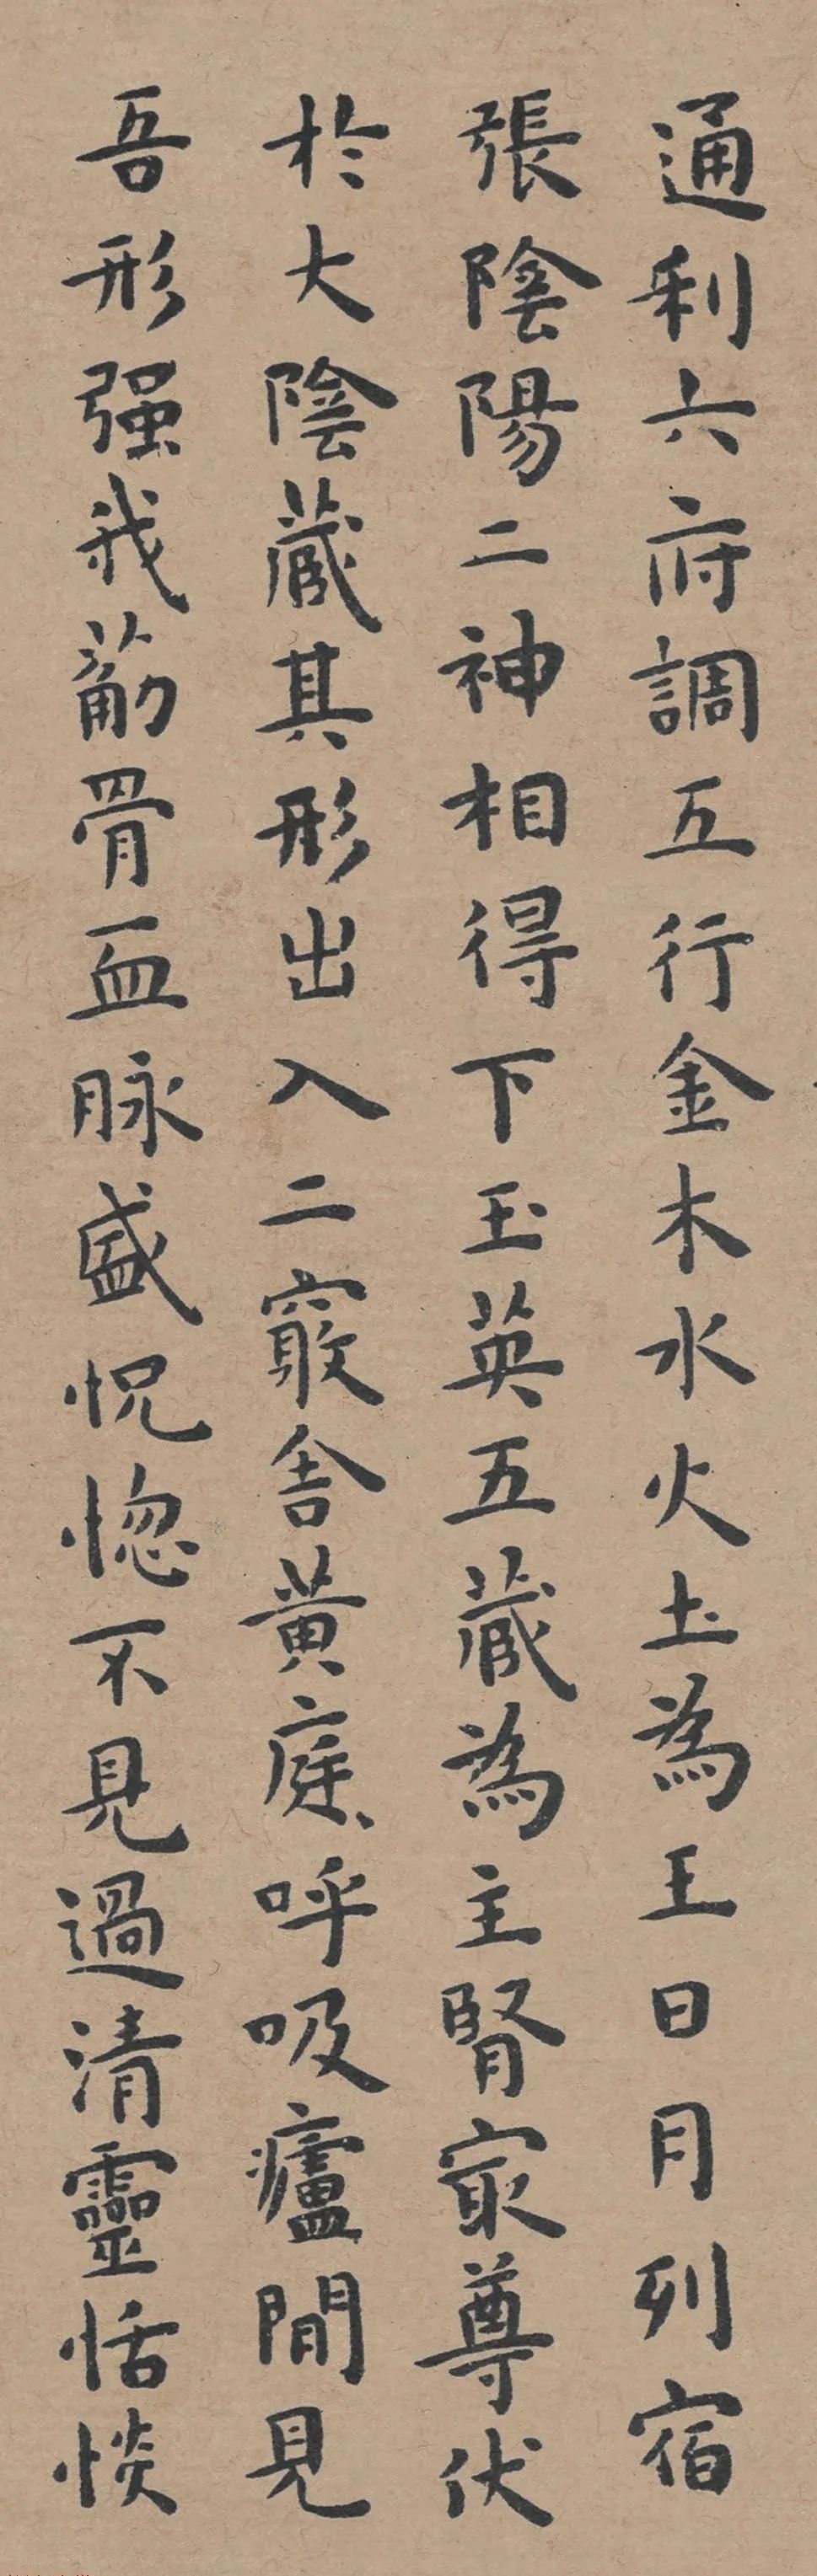 通利六府調五行金木水火土為王日月列宿
張陰陽二神相得下玉英五蔵為主腎冣尊伏
於大陰蔵其形出入二竅舍黃庭呼吸廬間見
吾形强我筋骨血脉盛怳惚不見過清靈恬惔